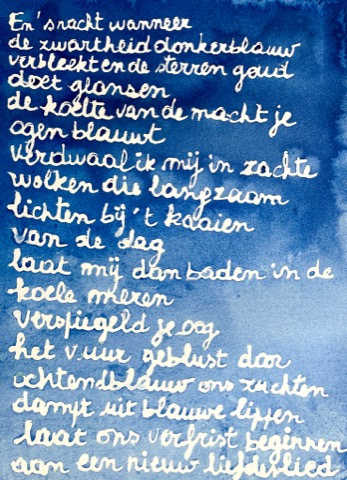 En 's nacht wanneer
de zwartheid donkerblauw
verbleekt en de sterren goud
doet glansen
de koelte van de macht je
ogen blauwt
verdwaal ik mij in zachte
wolken die langzaam
lichten bij 't kraaien
van de dag
laat mij dan baden in de
koele meren
verspiegeld je oog
het vuur geblust door
ochtendblauw ons zuchten
dampt uit blauwe lippen
laat ons verfrist beginnen
aan een nieuw liefdeslied